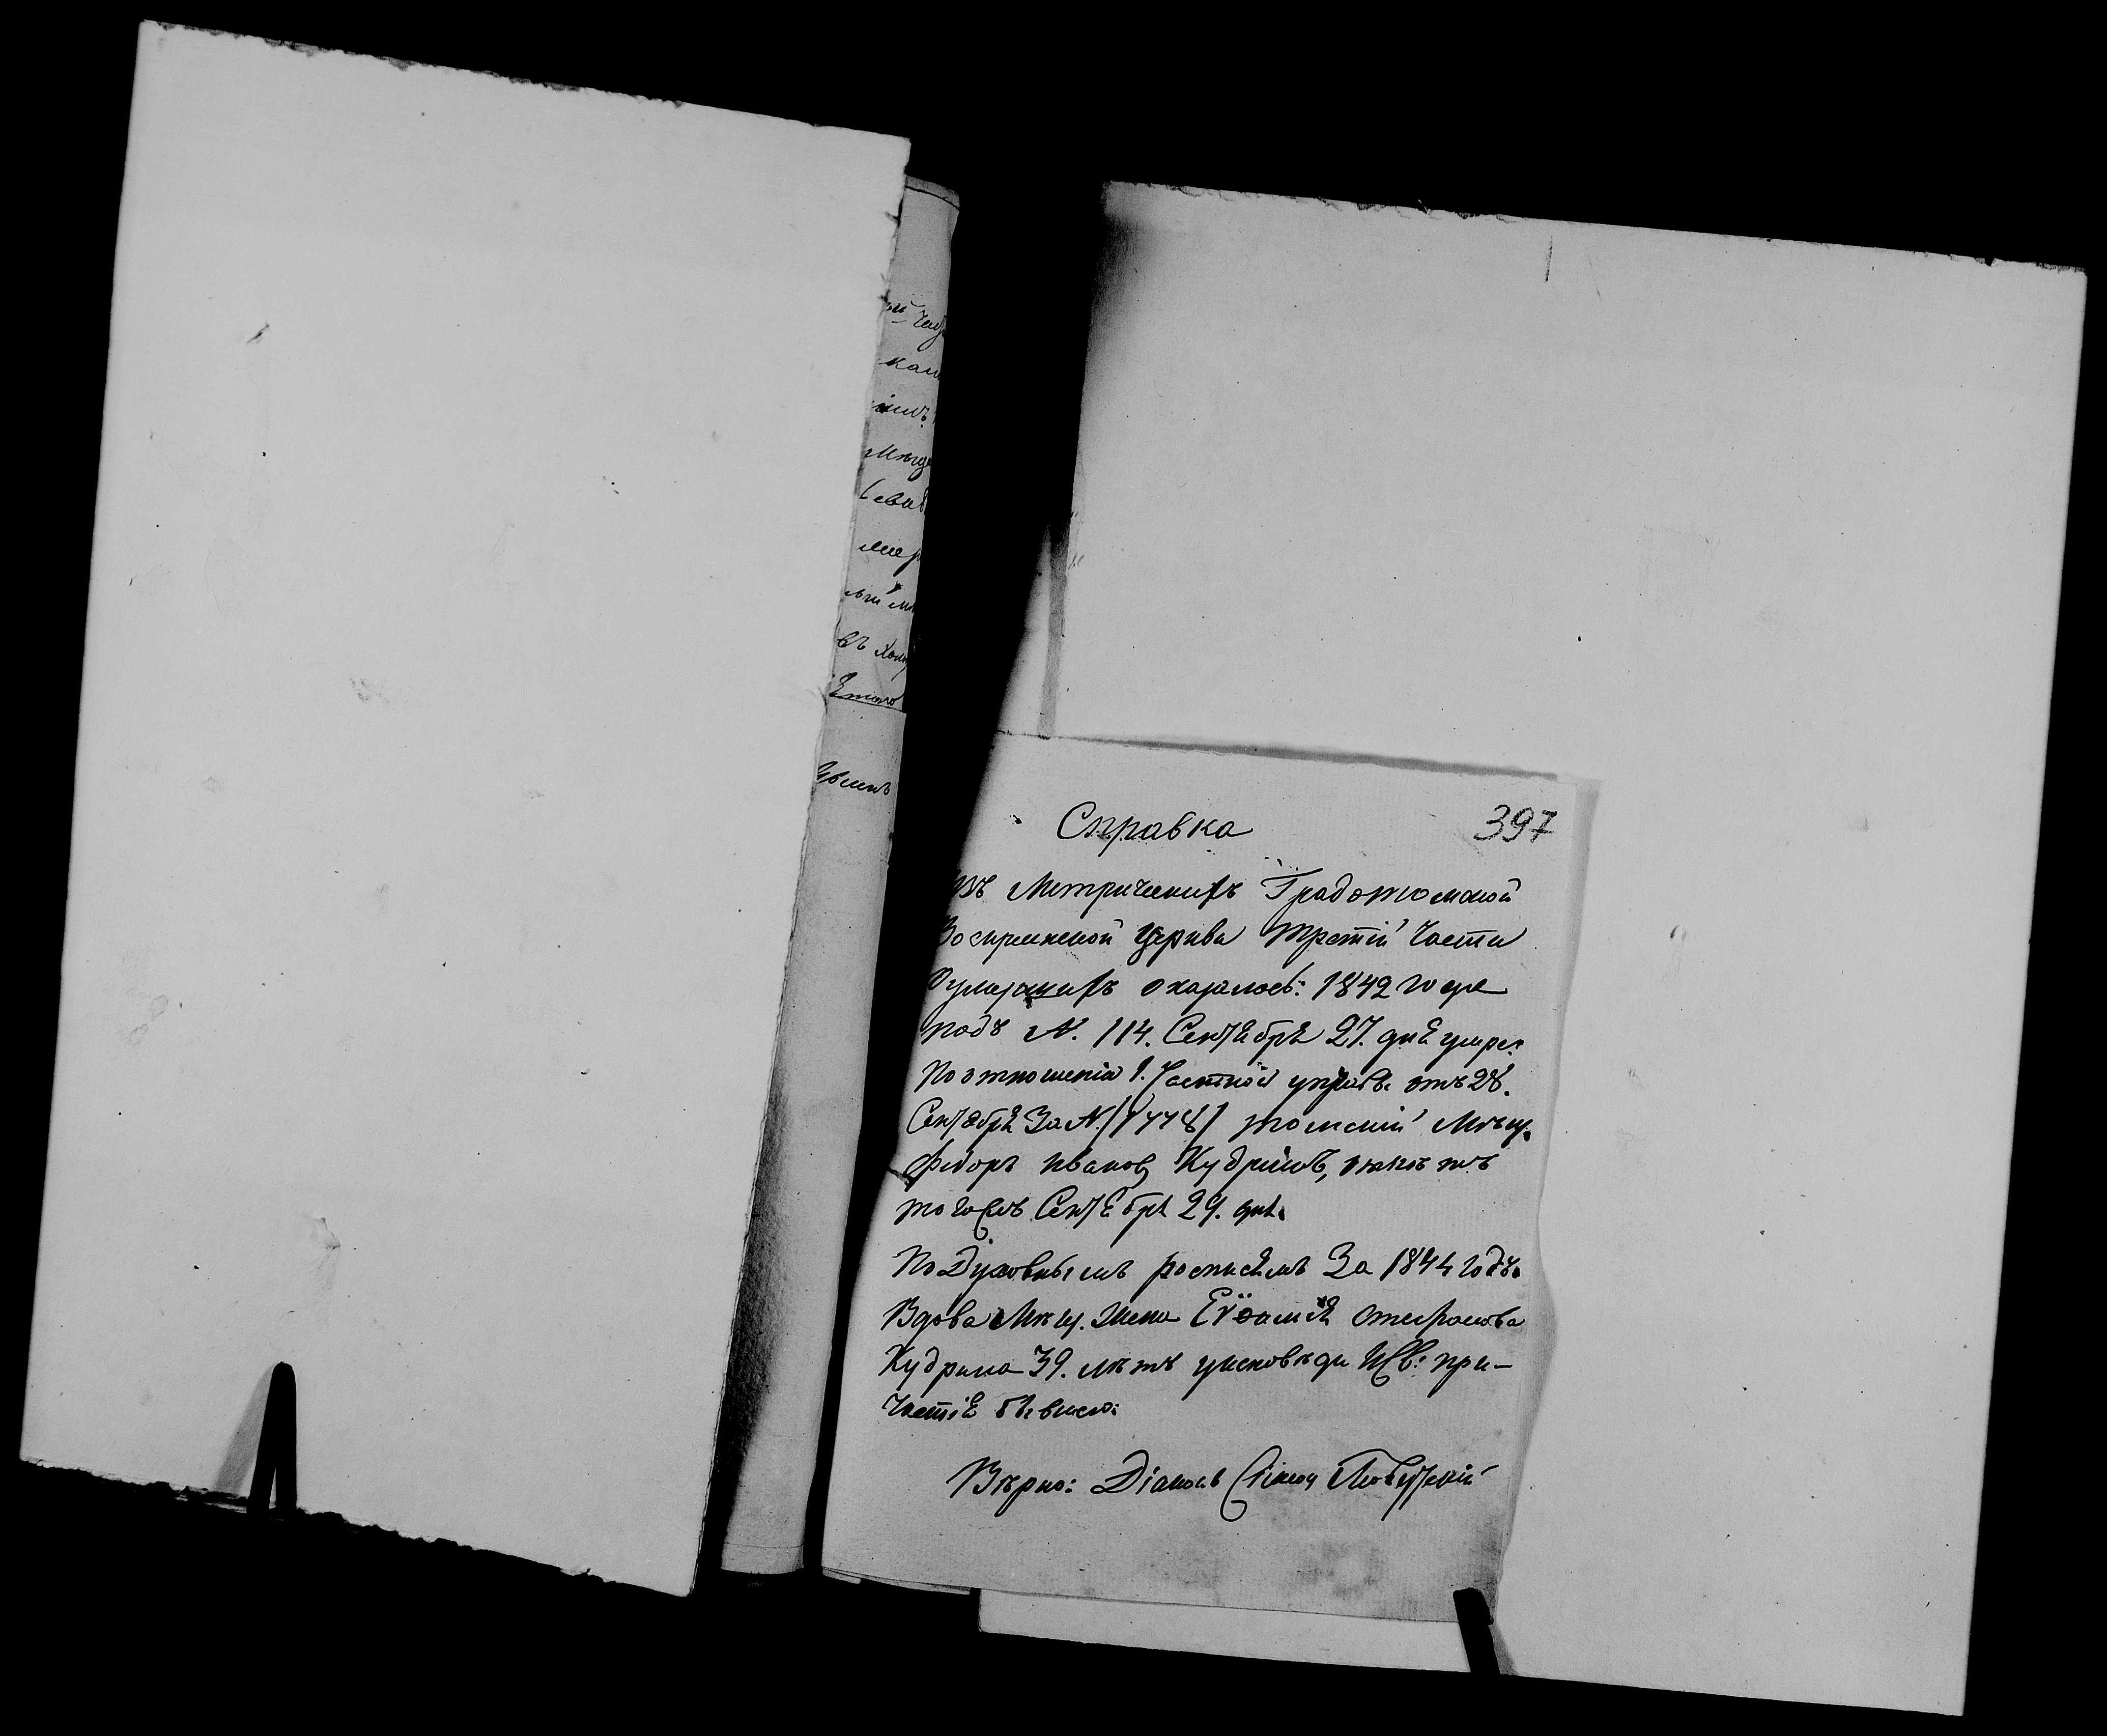 Справка
397
изъ Метрическихъ Градотомской
Воскресенской Церкви Третій Части
О умершихъ оказалось: 1842 года
подъ N. 114. Сентября 27. дня умре:
По отношенія 1. Частной управы отъ 28.
Сентября За N. /1778/ томскій Мѣщ.
Федоръ Иванов Кудринъ,
тогожъ Сентября 29. дня.
По Духовнымъ росписямъ За 1844 годъ.
Вдова Мѣщ. Жена Стефанова
Кудрина 39. лѣтъ уисповѣди ИСв: при-
частія бывшею:
Вѣрно: Діаконъ Симеон
въ